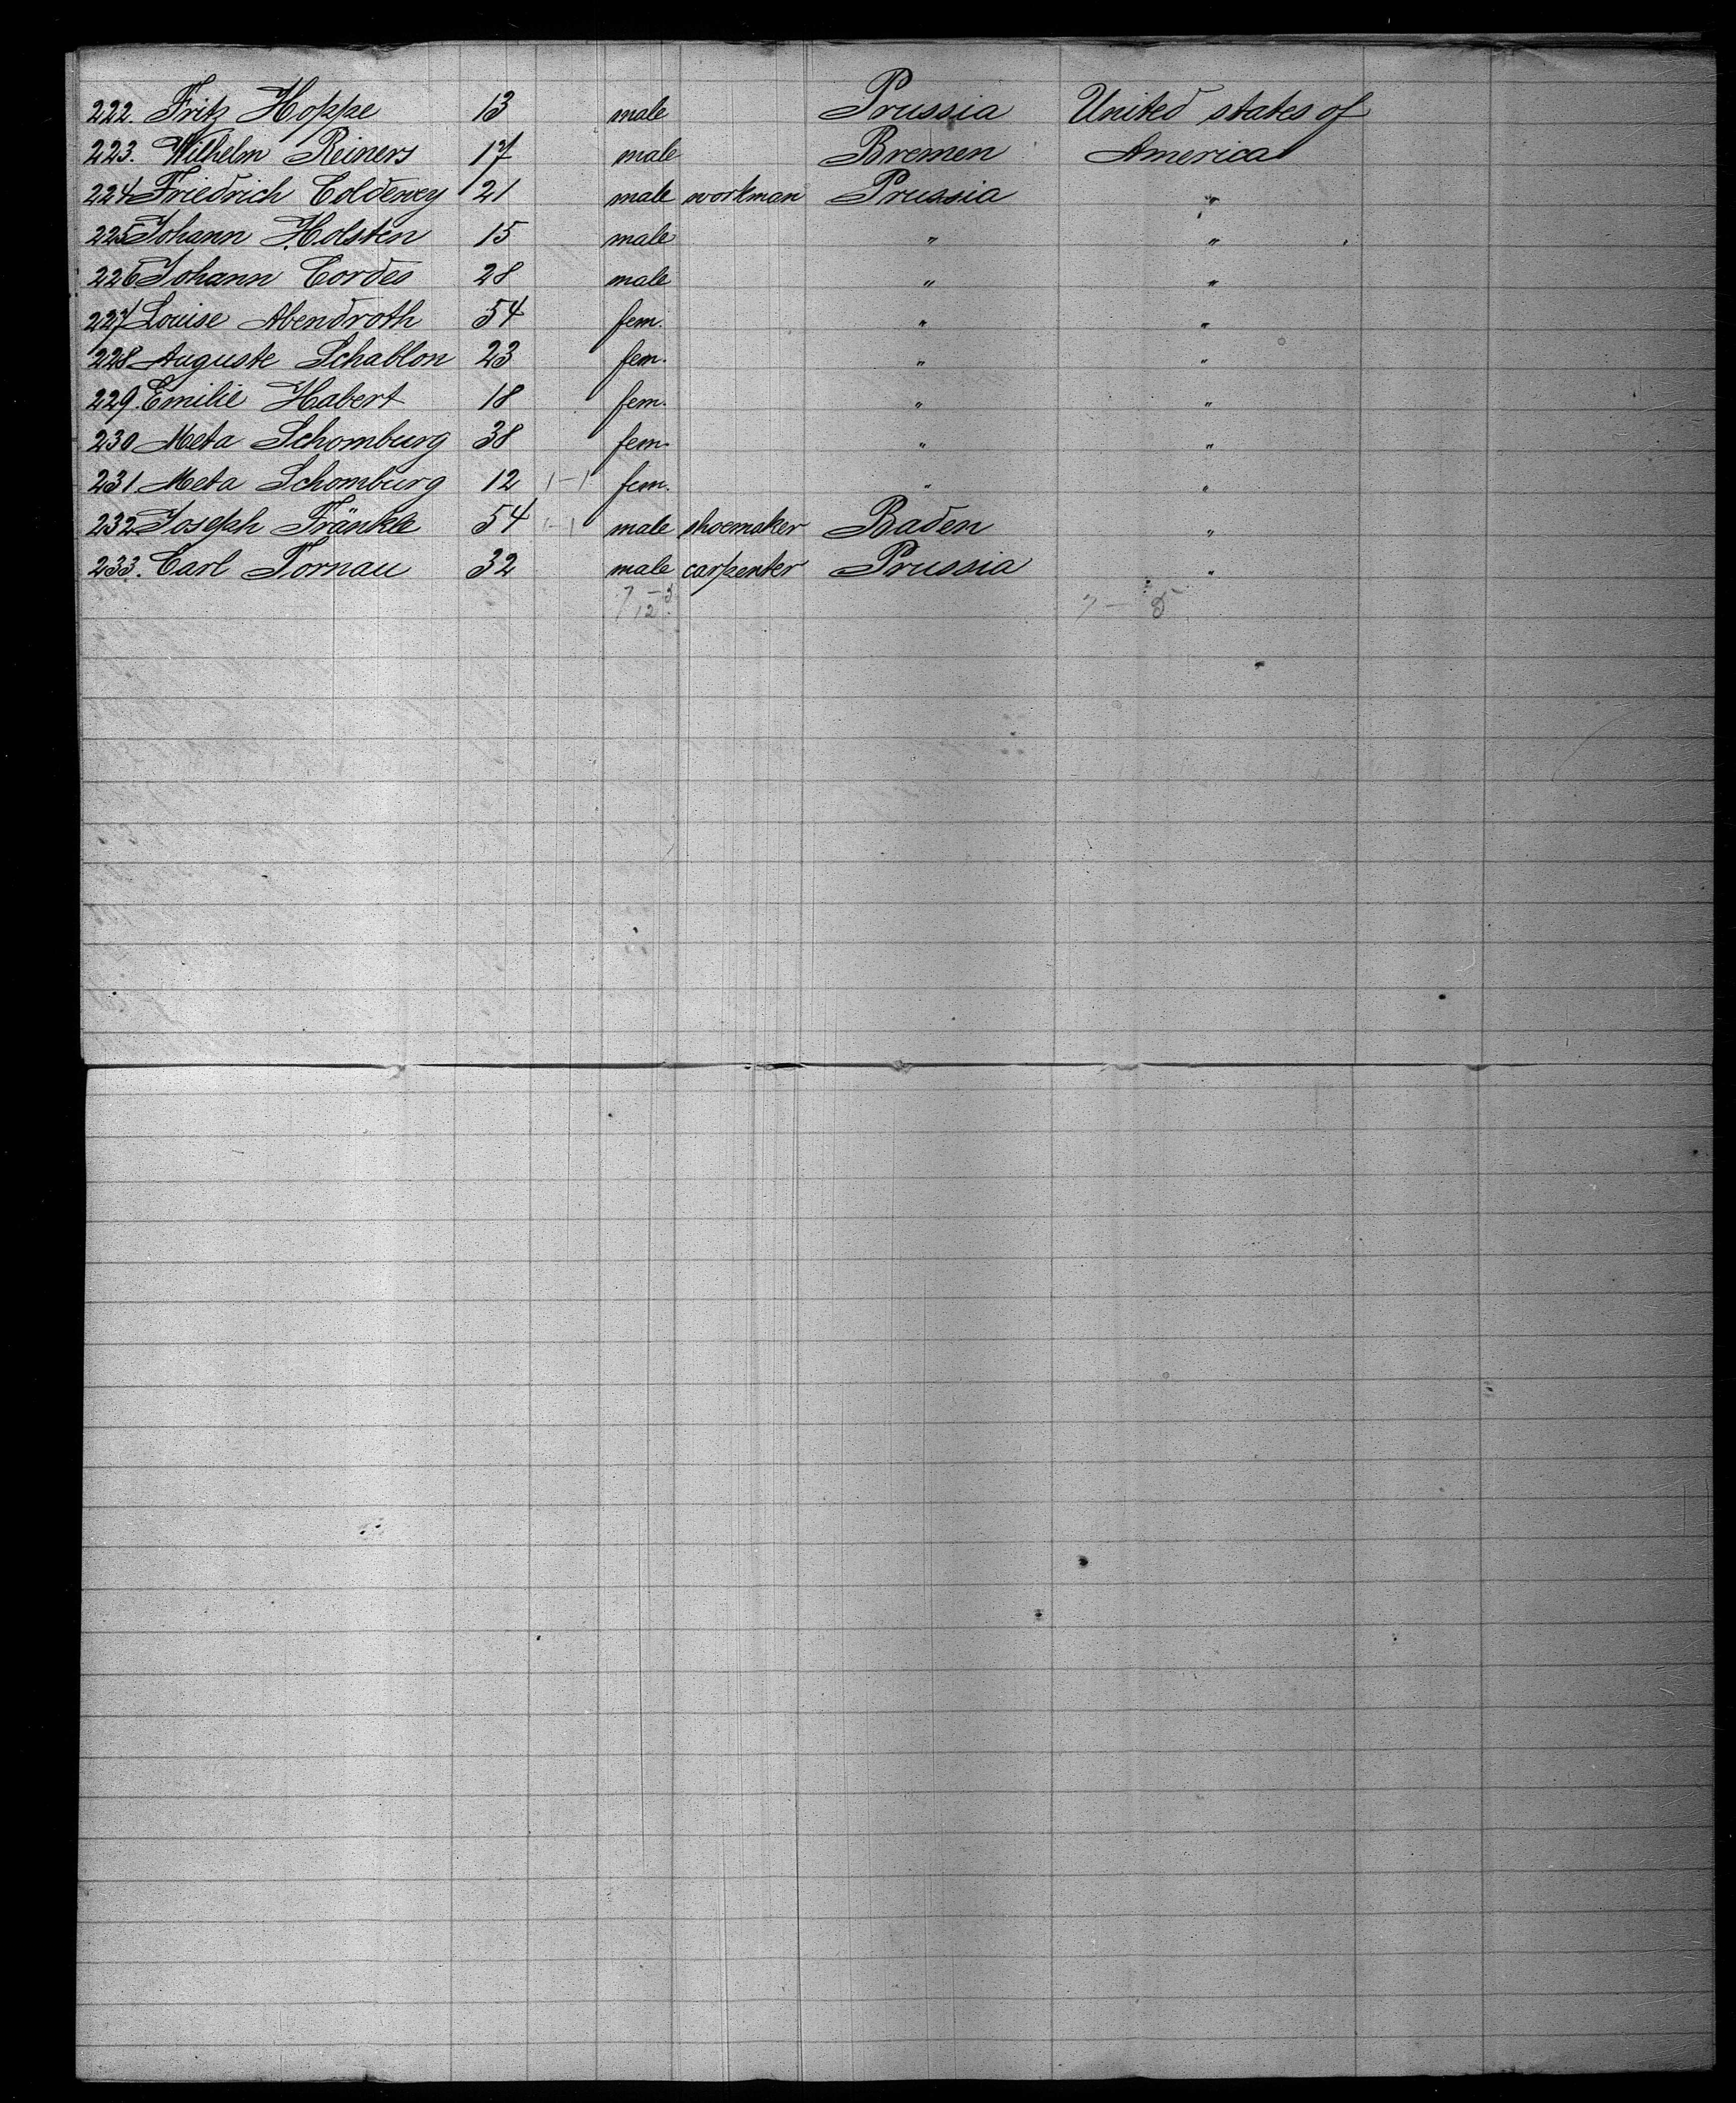 222. Fritz Hoppe 13 male Prussia United states of
223. Wilhelm Reiners 17 male Bremen America
224 Friedrich Coldewey 21 male workman Prussia "
225 Johann Holsten 15 male " "
226 Johann Cordes 28 male " "
227 Louise Abendroth 54 fem. " "
228 Auguste Schablon 23 fem. " "
229. Emilie Habert 18 fem. " "
230 Meta Schomburg 38 fem. " "
231. Meta Schomburg 12 1-1 fem. " "
232 Joseph Fränkle 54 1-1 male shoemaker Baden "
233. Carl Tornau 32 male carpenter Prussia "
7 - 5 7 - 5
12